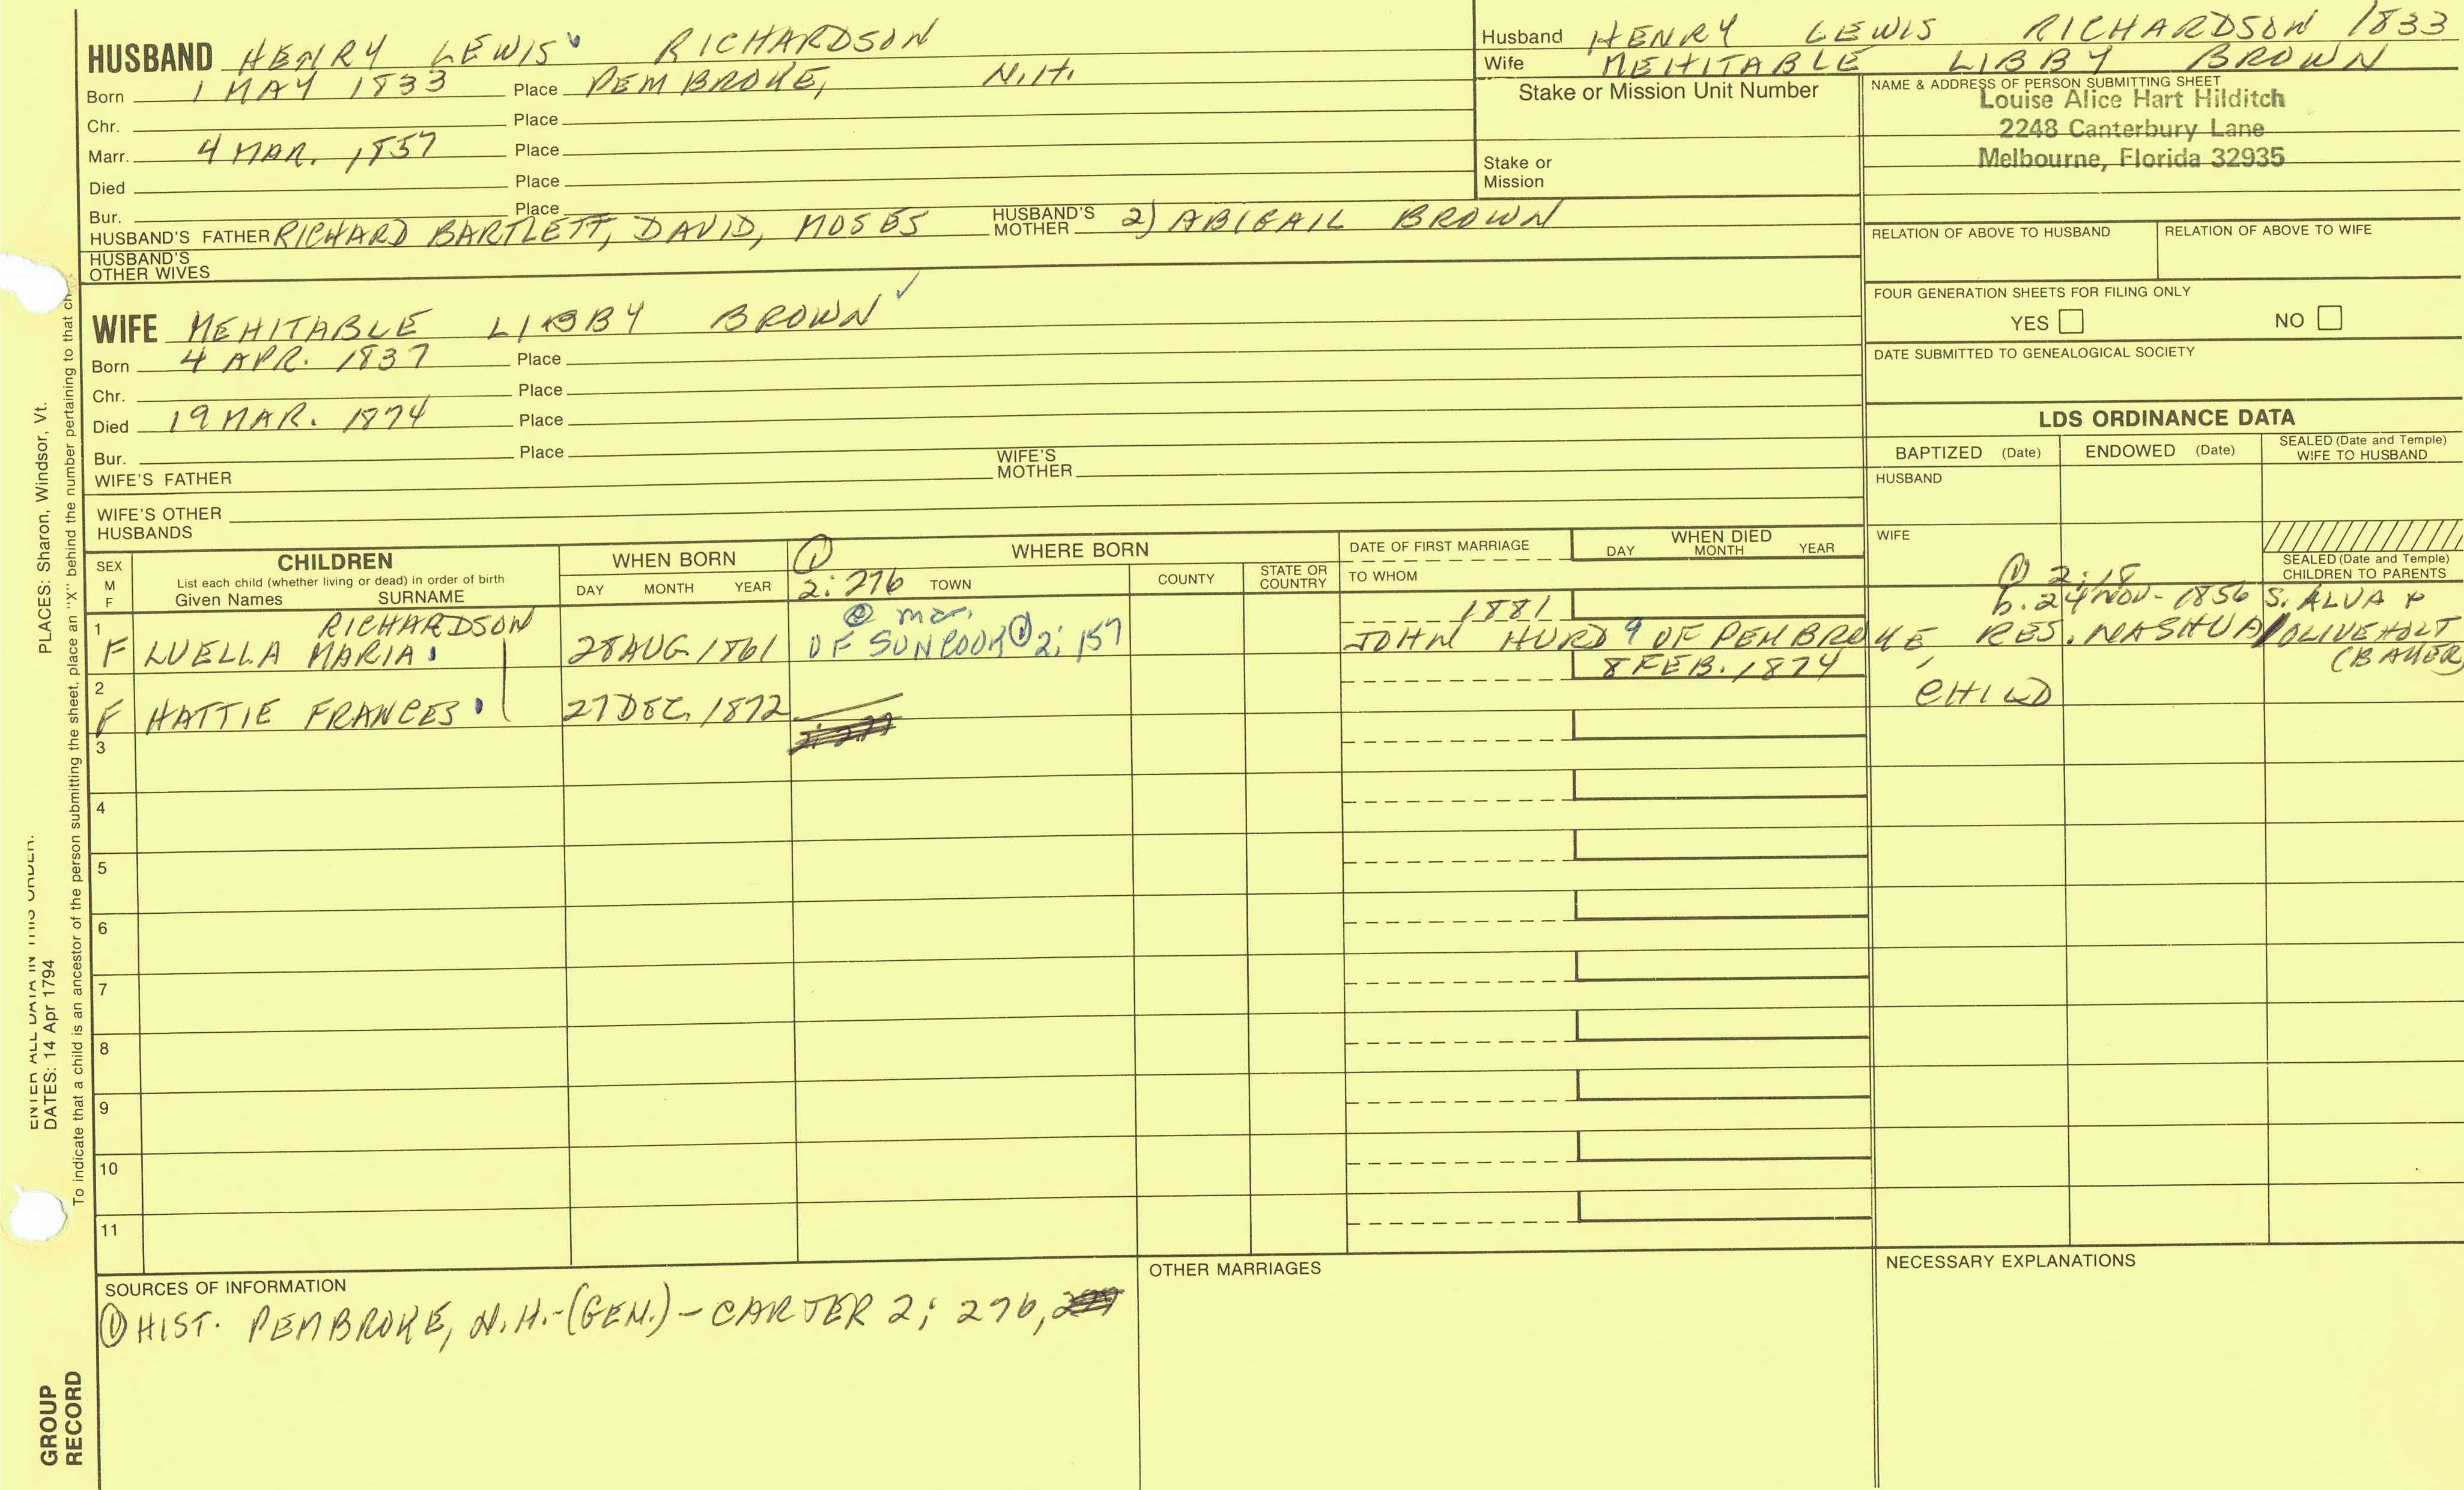 HUSBAND HENRY LEWIS RICHARDSON
Born 1 MAY 1833 Place PEMBROKE, N.H.
Chr. Place
Marr. 4 MAR. 1857 Place
Died Place
Bur. Place
HUSBAND'S FATHER RICHARD BARTLETT, DAVID, MOSES HUSBAND'S MOTHER 2) ABIGAIL BROWN
HUSBAND'S OTHER WIVES
Husband HENRY LEWIS RICHARDSON 1833
Wife MEHITABLE LIBBY BROWN
Stake or Mission Unit Number
Stake or Mission
NAME & ADDRESS OF PERSON SUBMITTING SHEET
Louise Alice Hart Hilditch
2248 Canterbury Lane
Melbourne, Florida 32935
RELATION OF ABOVE TO HUSBAND RELATION OF ABOVE TO WIFE
FOUR GENERATION SHEETS FOR FILING ONLY
YES NO
DATE SUBMITTED TO GENEALOGICAL SOCIETY
WIFE MEHITABLE LIBBY BROWN ✓
Born 4 APR. 1837 Place
Chr. Place
Died 19 MAR. 1874 Place
Bur. Place
WIFE'S FATHER WIFE'S MOTHER
WIFE'S OTHER HUSBANDS
LDS ORDINANCE DATA
BAPTIZED (Date) ENDOWED (Date) SEALED (Date and Temple) WIFE TO HUSBAND
HUSBAND
WIFE
SEALED (Date and Temple) CHILDREN TO PARENTS
SEX M F
CHILDREN
List each child (whether living or dead) in order of birth
Given Names SURNAME
WHEN BORN
DAY MONTH YEAR
① WHERE BORN
2:276 TOWN COUNTY STATE OR COUNTRY
DATE OF FIRST MARRIAGE
TO WHOM
WHEN DIED
DAY MONTH YEAR
① 2:18
b. 24 NOV. 1856 S. ALVA &
1 RICHARDSON @ mar. 1881
F LUELLA MARIA 28 AUG 1861 OF SUNCOOK ① 2:157 JOHN HURD 9 OF PEMBROKE, RES. NASHUA / OLIVE HOLT
(BAKER)
2 8 FEB. 1874
F HATTIE FRANCES 27 DEC. 1872 CHILD
3
4
5
6
7
8
9
10
11
SOURCES OF INFORMATION
① HIST. PEMBROKE, N.H. - (GEN.) - CARTER 2; 276,
OTHER MARRIAGES
NECESSARY EXPLANATIONS
PLACES: Sharon, Windsor, Vt.
ENTER ALL DATA IN THIS ORDER:
DATES: 14 Apr 1794
To indicate that a child is an ancestor of the person submitting the sheet, place an "X" behind the number pertaining to that
GROUP RECORD